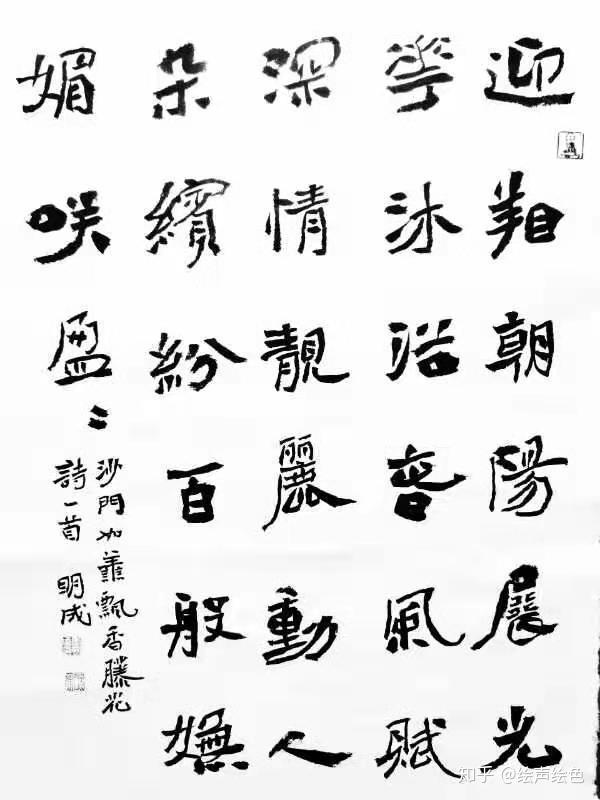 迎着朝陽展光
華沐浴春風賦
深情靚麗動人
朵繽紛百般嫵
媚咲盈〻
沙門飄香藤花
詩一首 明成
知乎 @绘声绘色